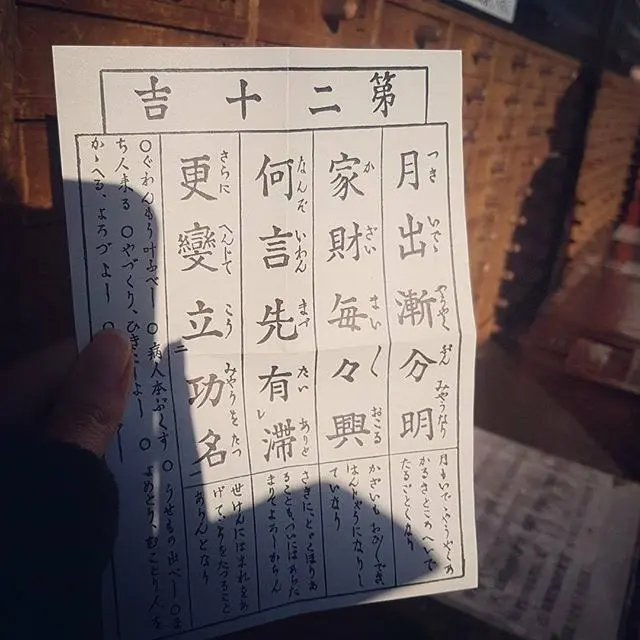 第二十吉
月出漸分明
つき いでゝ やうやく ぶん みやうなり
月もいで、やうやくあ
かるきところへいで
たるごとくなり
家財毎々興
か ざい まい〱 おこる
かざいも
はんじやうになりし
ていなり
何言先有滞
なんぞ いわん まづ たい ありと
さきに、とゞこほりあ
ることも、ついにはあらた
まりてよろしからん
更變立功名
さらに へんじて こう みやうを たつ
せけんにほまれをあ
げて、たつること
あらんとなり
〇ぐわんもう叶ふべし 〇病人本ぶくす 〇うせもの出べし 〇ま
ち人来る 〇やづくり、ひきこしよし 〇よめとり、むことり、人を
かゝへる、よろづよし 〇